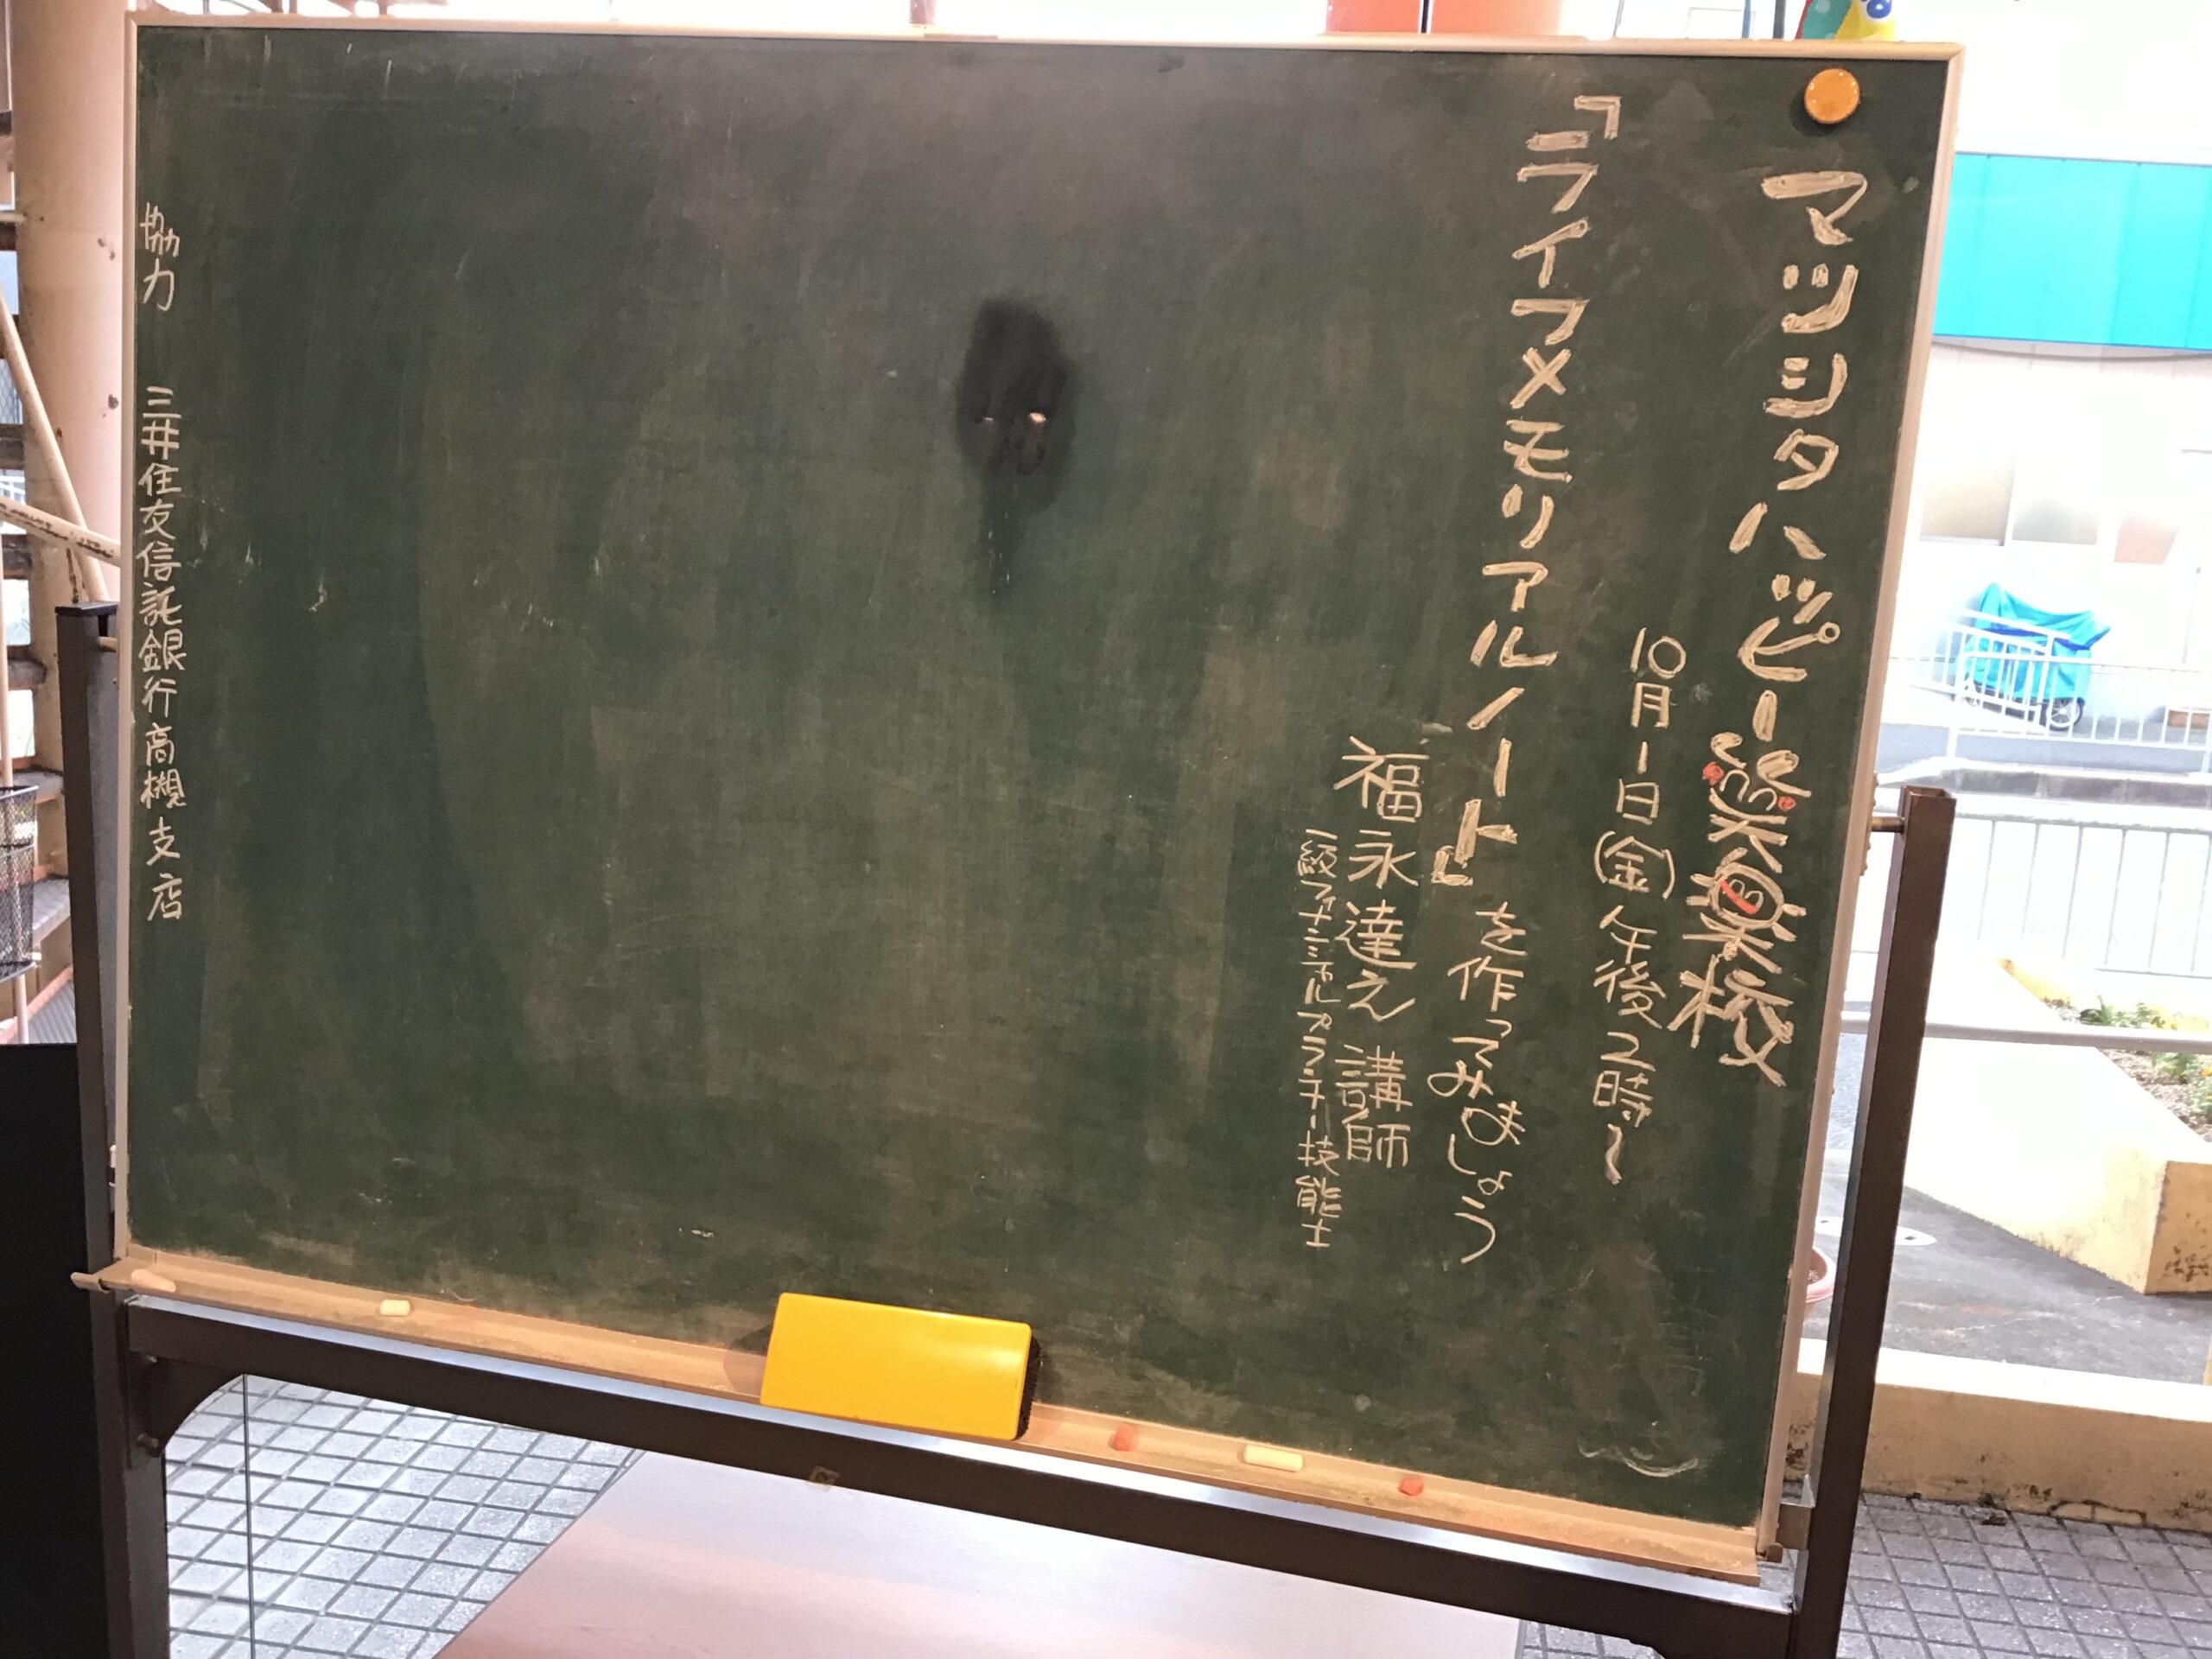 マツシタハッピー笑楽校
10月1日(金)午後2時〜
『ライフメモリアルノート』を作ってみましょう
福永達え 講師
一級ファイナンシャルプランナー技能士
協力 三井住友信託銀行高槻支店